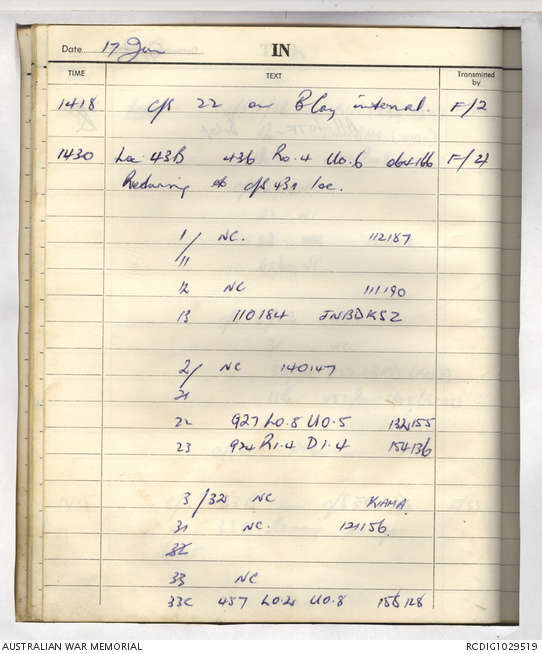 Date 17 Jun IN
TIME TEXT Transmitted by
1418 c/s 22 on B Coy internal. F/2
1430 Loc 43B 436 R0.4 U0.6 064166 F/4
Returning to c/s 431 loc.
1/ NC. 112187
11
12 NC 111190
13 110184 JNBDKSZ
2/ NC 140147
21
22 927 L0.8 U0.5 132155
23 924 R1.4 D1.4 154136
3/32 NC KIAMA
31 NC. 121156
32
33 NC
33C 457 L0.2 U0.8 155128
AUSTRALIAN WAR MEMORIAL RCDIG1029519